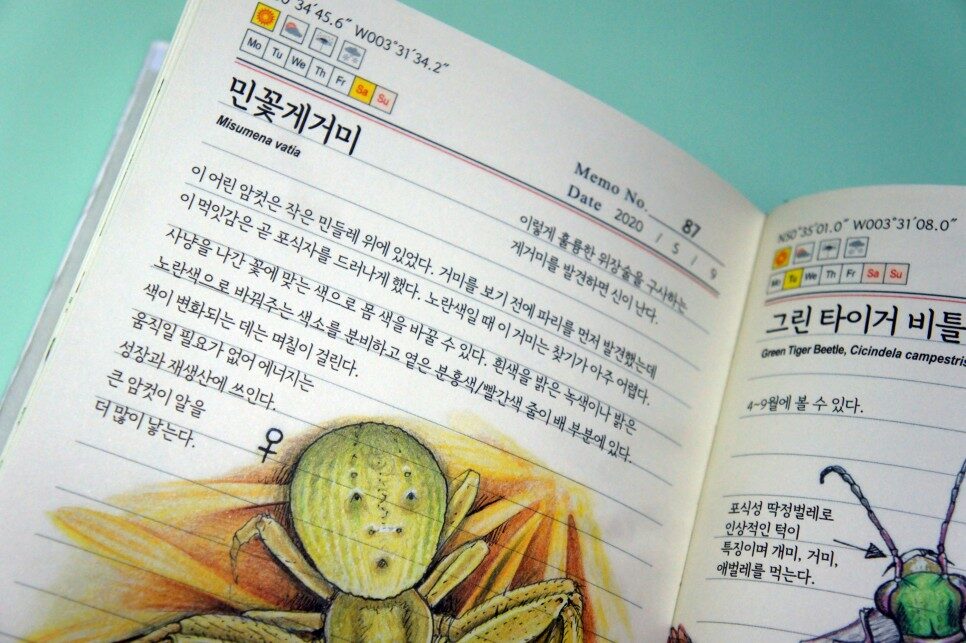 34´45.6˝ W003°31´34.2˝
Mo Tu We Th Fr Sa Su
민꽃게거미
Misumena vatia
Memo No. 87
Date 2020 / 5 / 9
이렇게 훌륭한 위장술을 구사하는
게거미를 발견하면 신이 난다.
이 어린 암컷은 작은 민들레 위에 있었다. 거미를 보기 전에 파리를 먼저 발견했는데
이 먹잇감은 곧 포식자를 드러나게 했다. 노란색일 때 이 거미는 찾기가 아주 어렵다.
사냥을 나간 꽃에 맞는 색으로 몸 색을 바꿀 수 있다. 흰색을 밝은 녹색이나 밝은
노란색으로 바꿔주는 색소를 분비하고 옅은 분홍색/빨간색 줄이 배 부분에 있다.
색이 변화되는 데는 며칠이 걸린다.
움직일 필요가 없어 에너지는
성장과 재생산에 쓰인다.
큰 암컷이 알을
더 많이 낳는다.
♀
N50°35´01.0˝ W003°31´08.0˝
Mo Tu We Th Fr Sa Su
그린 타이거 비틀
Green Tiger Beetle, Cicindela campestris
4~9월에 볼 수 있다.
포식성 딱정벌레로
인상적인 턱이
특징이며 개미, 거미,
애벌레를 먹는다.